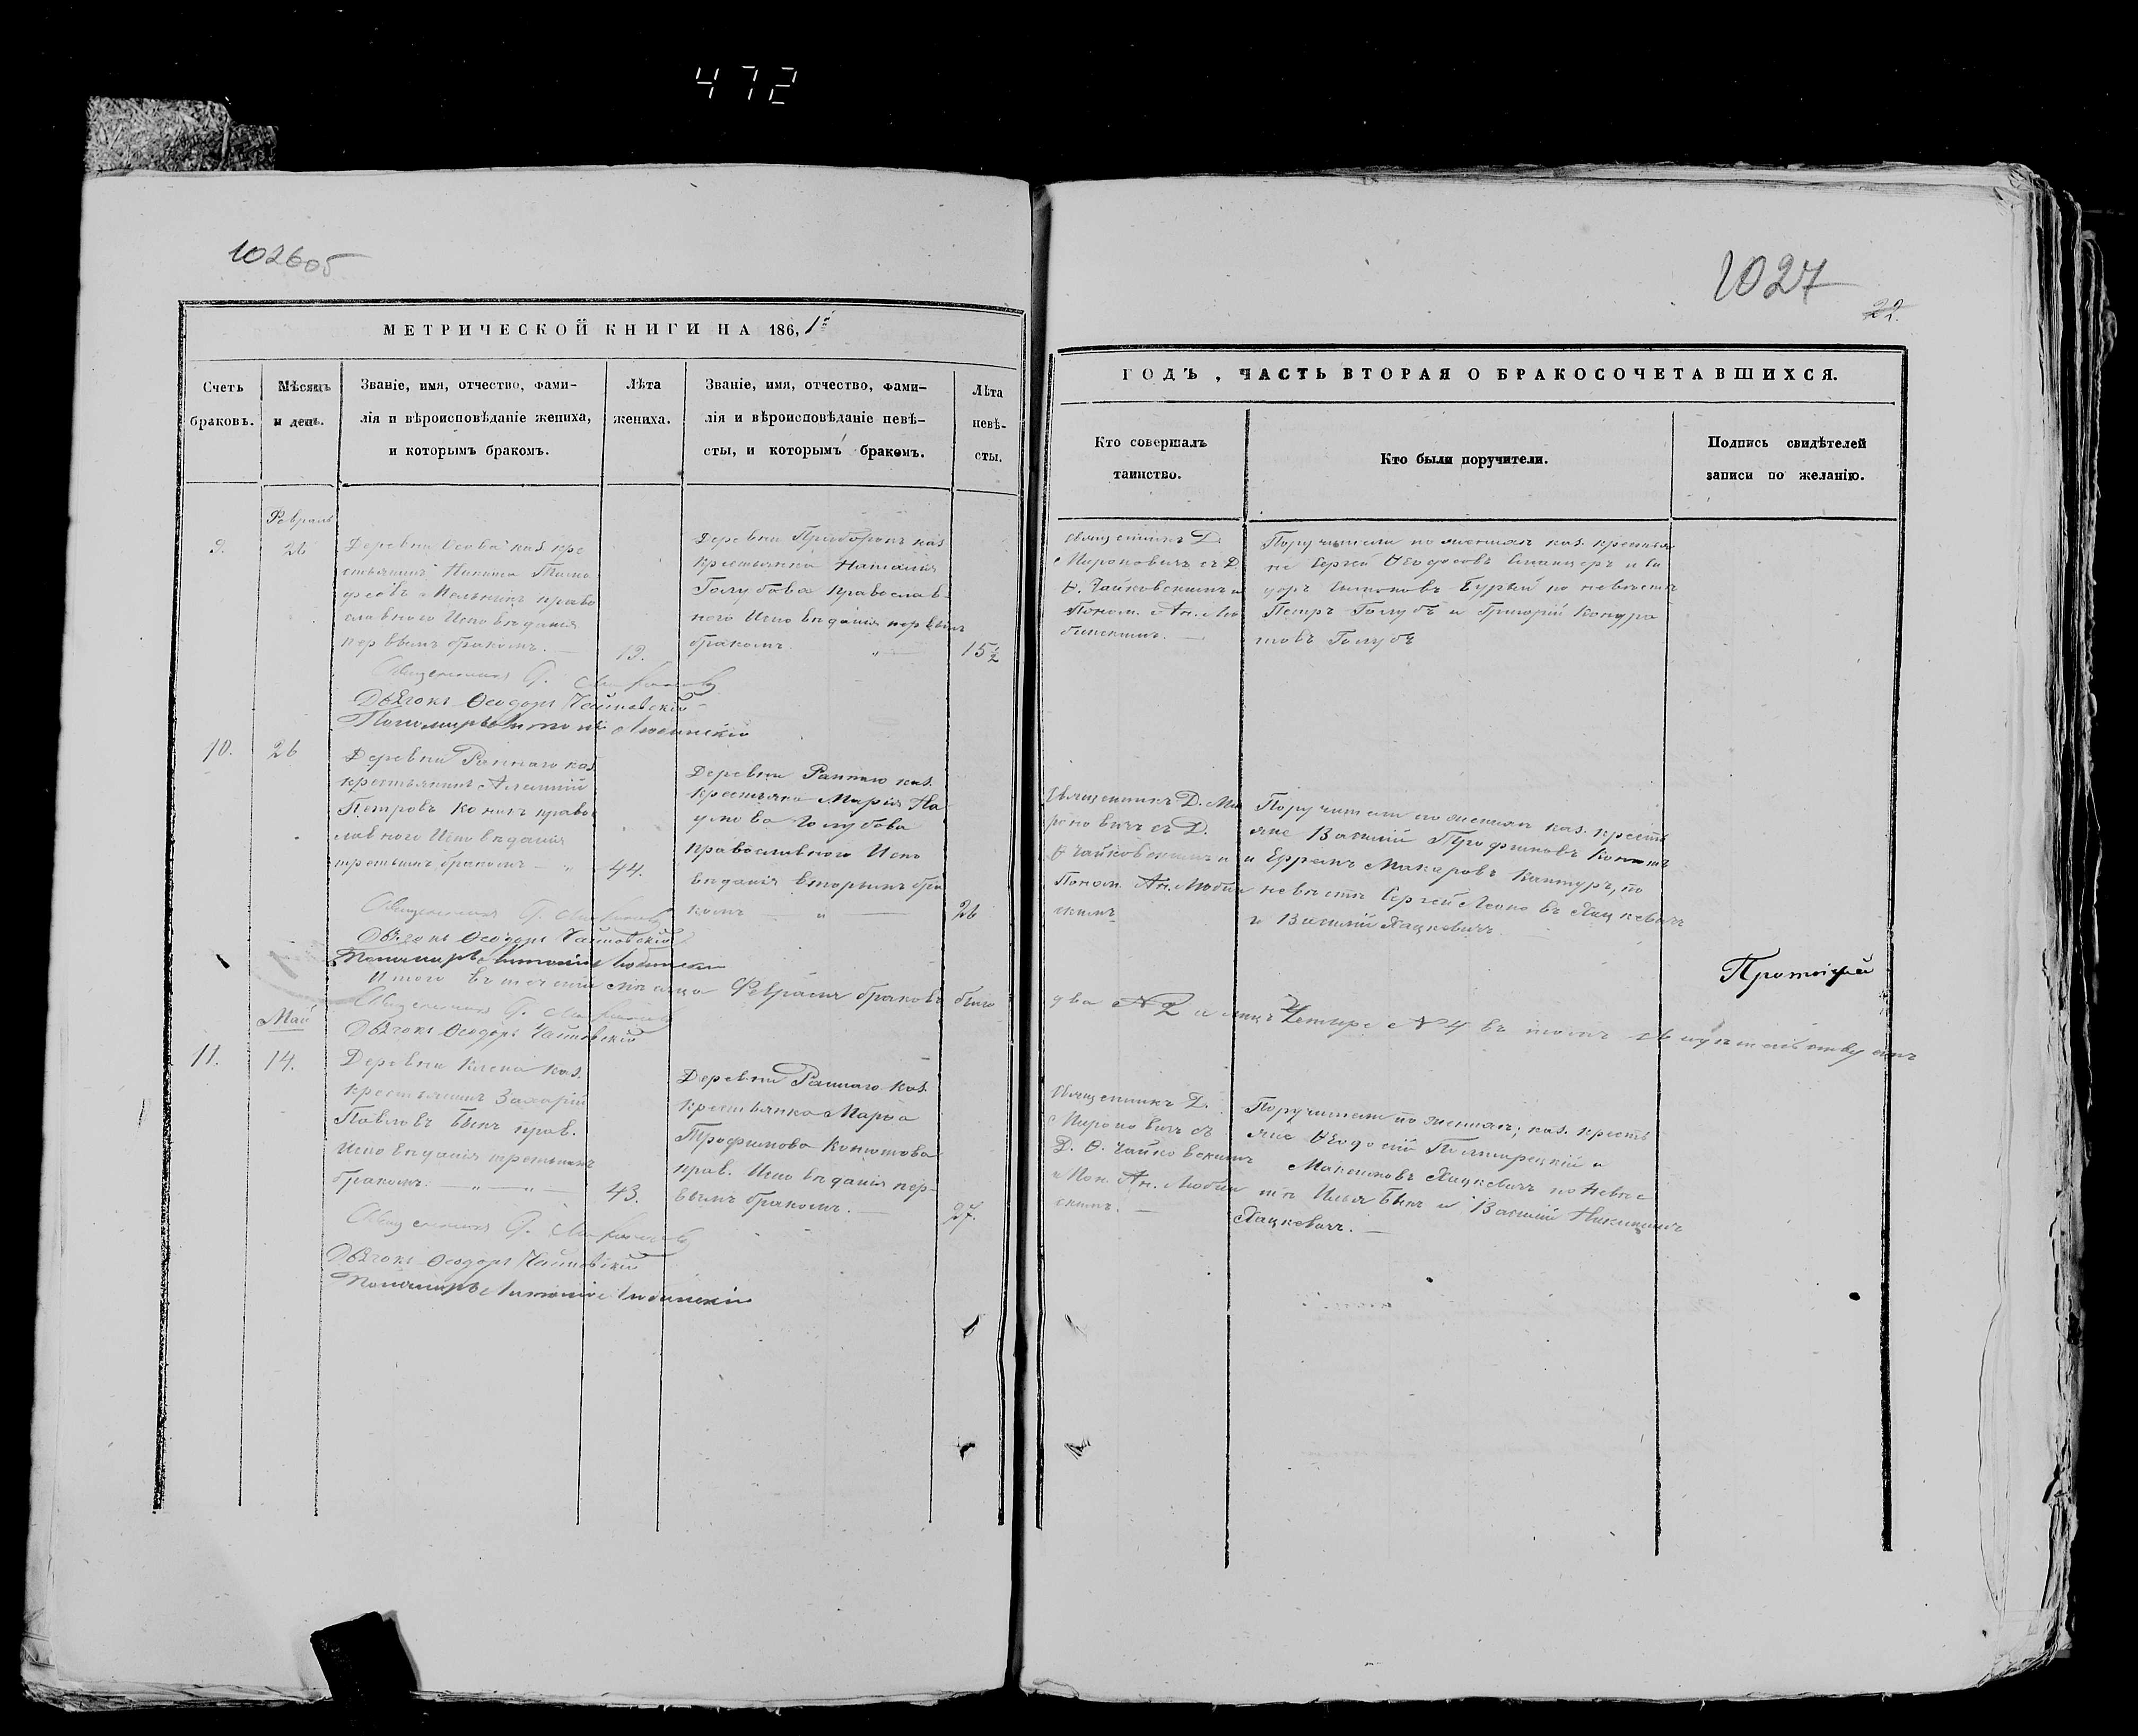 472
1026об
1027
22.
МЕТРИЧЕСКОЙ КНИГИ НА 186,1й
ГОДЪ, ЧАСТЬ ВТОРАЯ О БРАКОСОЧЕТАВШИХСЯ.
Счетъ
браковъ.
Мѣсяцъ
и день.
Званіе, имя, отчество, фами-
лія и вѣроисповѣданіе жениха,
и которымъ бракомъ.
Лѣта
жениха.
Званіе, имя, отчество, фами-
лія и вѣроисповѣданіе невѣ-
сты, и которымъ бракомъ.
Лѣта
невѣ-
сты.
Кто совершалъ
таинство.
Кто были поручители.
Подпись свидѣтелей
записи по желанію.
Февраль
9.
26
Деревни Осова каз. кре
стьянинъ Никита Тимо
феевъ Мельникъ право
славного Исповѣданія
первымъ бракомъ.
19.
Деревни Приборокъ каз.
крестьянка Наталія
Голубова православ
ного Исповѣданія первымъ
бракомъ
15½
Священникъ Д.
Мироновичъ съ Д.
Ѳ. Чайковскимъ и
Поном. Ан. Лю
бинскимъ.
Поручители по женихѣ каз. крестья
не Сергій Ѳеодосовъ и Си
доръ Бурый по невѣстѣ
Петръ Голубъ и Григорій Кондра
товъ Голубъ
Священникъ Д. Мироновичъ
Дьячокъ Ѳеодоръ Чайковскій
Пономарь Антоній Любинскій
10.
26
Деревни Раннаго каз.
крестьянинъ Алексій
Петровъ право
славного Исповѣданія
третьимъ бракомъ
44.
Деревни Раннаго каз.
крестьянка Марія На
умова Голубова
православного Испо
вѣданія вторымъ бра
комъ
26
Священникъ Д. Ми
роновичъ съ Д.
Ѳ. Чайковскимъ и
Поном. Ан. Любин
скимъ
Поручители по женихѣ каз. кресть
яне Василій Трофимовъ
и Ефремъ Макаровъ Кантуръ, по
невѣстѣ Сергей Леоновъ Яцкевичъ
и Василій Яцкевичъ
Священникъ Д. Мироновичъ
Дьячокъ Ѳеодоръ Чайковскій
Пономарь Антоній Любинскій
Итого въ теченіи мѣсяца Февраля браковъ было
два №2 а лицъ Четыре №4 въ томъ
Протоіерей
Священникъ Д. Мироновичъ
Дьячокъ Ѳеодоръ Чайковскій
Май
11.
14.
Деревни каз.
крестьянинъ Захарій
Павловъ Быкъ прав.
Исповѣданія третьимъ
бракомъ.
43.
Деревни Раннаго каз.
крестьянка Марѳа
Трофимова Конотова
прав. Исповѣданія пер-
вымъ бракомъ.
27.
Священникъ Д.
Мироновичъ съ
Д. Ѳ. Чайковскимъ
и Пон. Ан. Любин
скимъ.
Поручители по женихѣ; каз. кресть
яне Ѳеодосій и
Максимовъ Яцкевичъ по невѣс
тѣ Илья Быкъ и Василій
Яцкевичъ.
Священникъ Д. Мироновичъ
Дьячокъ Ѳеодоръ Чайковскій
Пономарь Антоній Любинскій